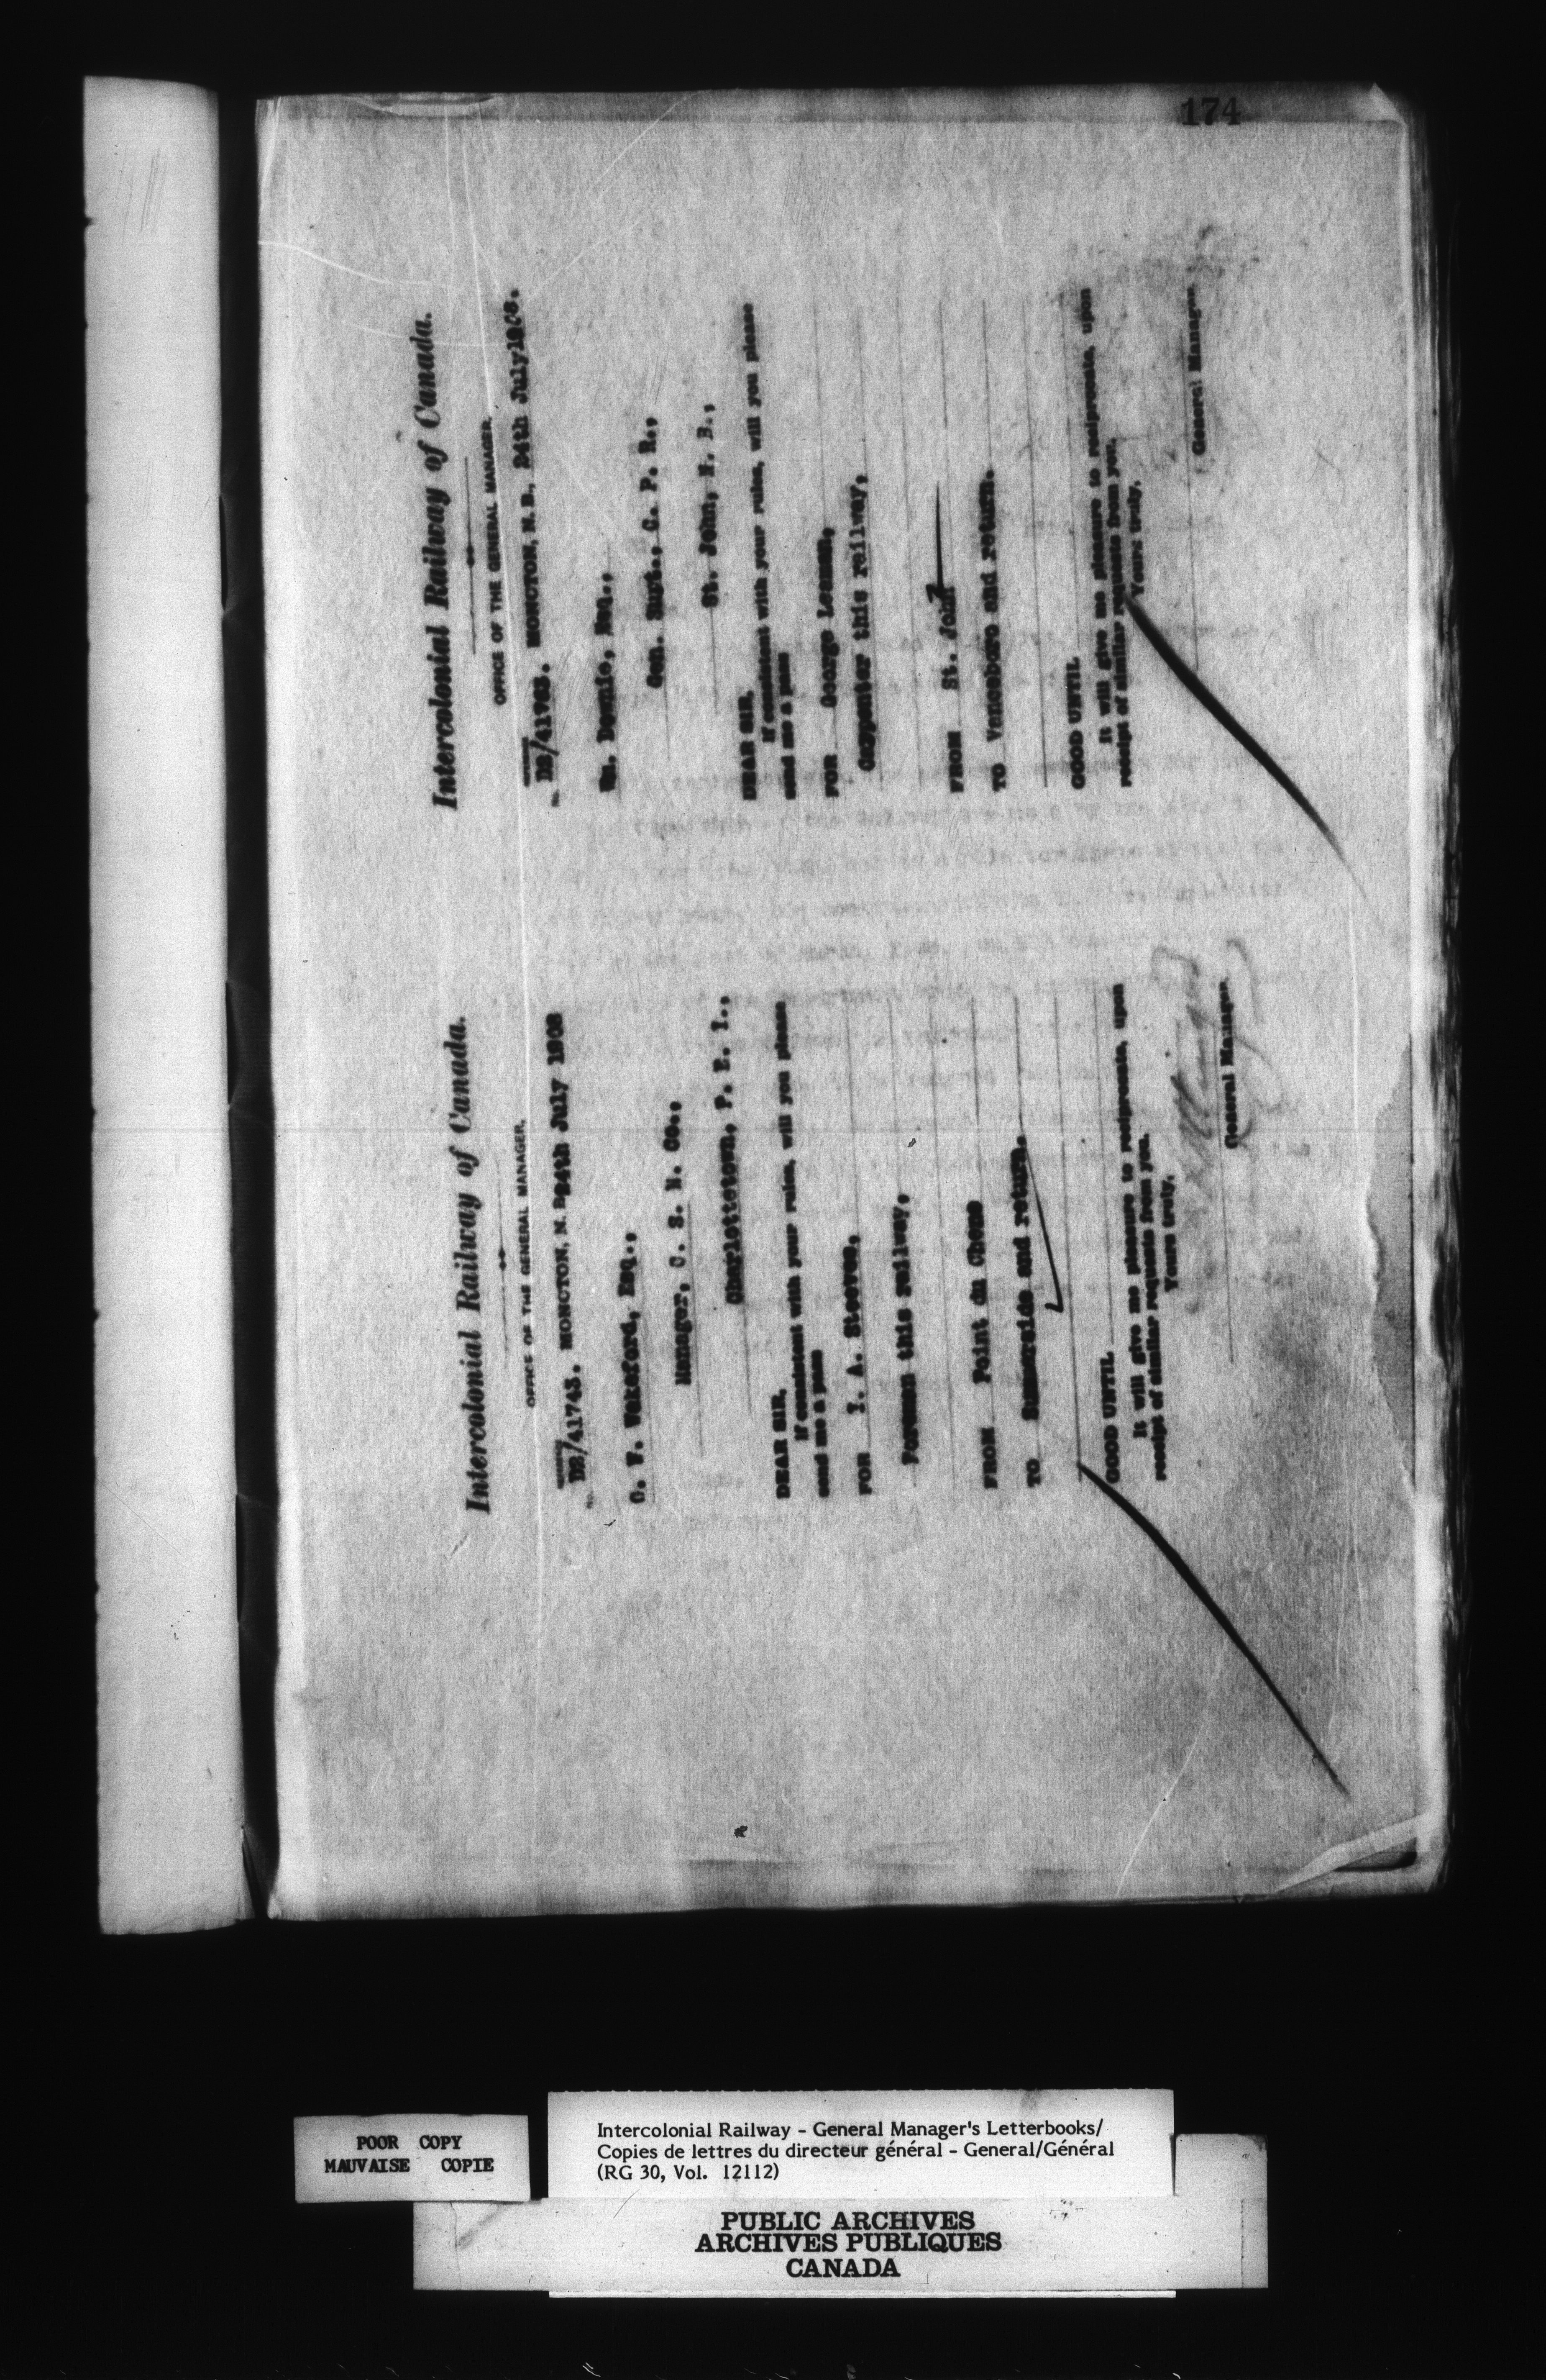 174
Intercolonial Railway of Canada.
OFFICE OF THE GENERAL MANAGER.
DB/41743. MONCTON, N. B 24th July 1908
C. V. Wakeford, Esq.,
Manager, C. S. N. Co.,
Charlottetown, P. E. I.,
DEAR SIR,
If consistent with your rules, will you please
send me a pass
FOR I. A. Steeves,
Foreman this railway,
FROM Point du Chene
TO Summerside and return.
GOOD UNTIL
It will give me pleasure to reciprocate, upon
receipt of similar requests from you.
Yours truly,
General Manager.
Intercolonial Railway of Canada.
OFFICE OF THE GENERAL MANAGER.
DB/41763. MONCTON, N. B., 24th July 1908.
Wm. Downie, Esq.,
Gen. Supt., C. P. R.,
St. John, N. B.,
DEAR SIR,
If consistent with your rules, will you please
send me a pass
FOR George Leaman,
Carpenter this railway,
FROM St. John
TO Vanceboro and return.
GOOD UNTIL
It will give me pleasure to reciprocate, upon
receipt of similar requests from you.
Yours truly,
General Manager.
POOR COPY
MAUVAISE COPIE
Intercolonial Railway - General Manager's Letterbooks/
Copies de lettres du directeur général - General/Général
(RG 30, Vol. 12112)
PUBLIC ARCHIVES
ARCHIVES PUBLIQUES
CANADA